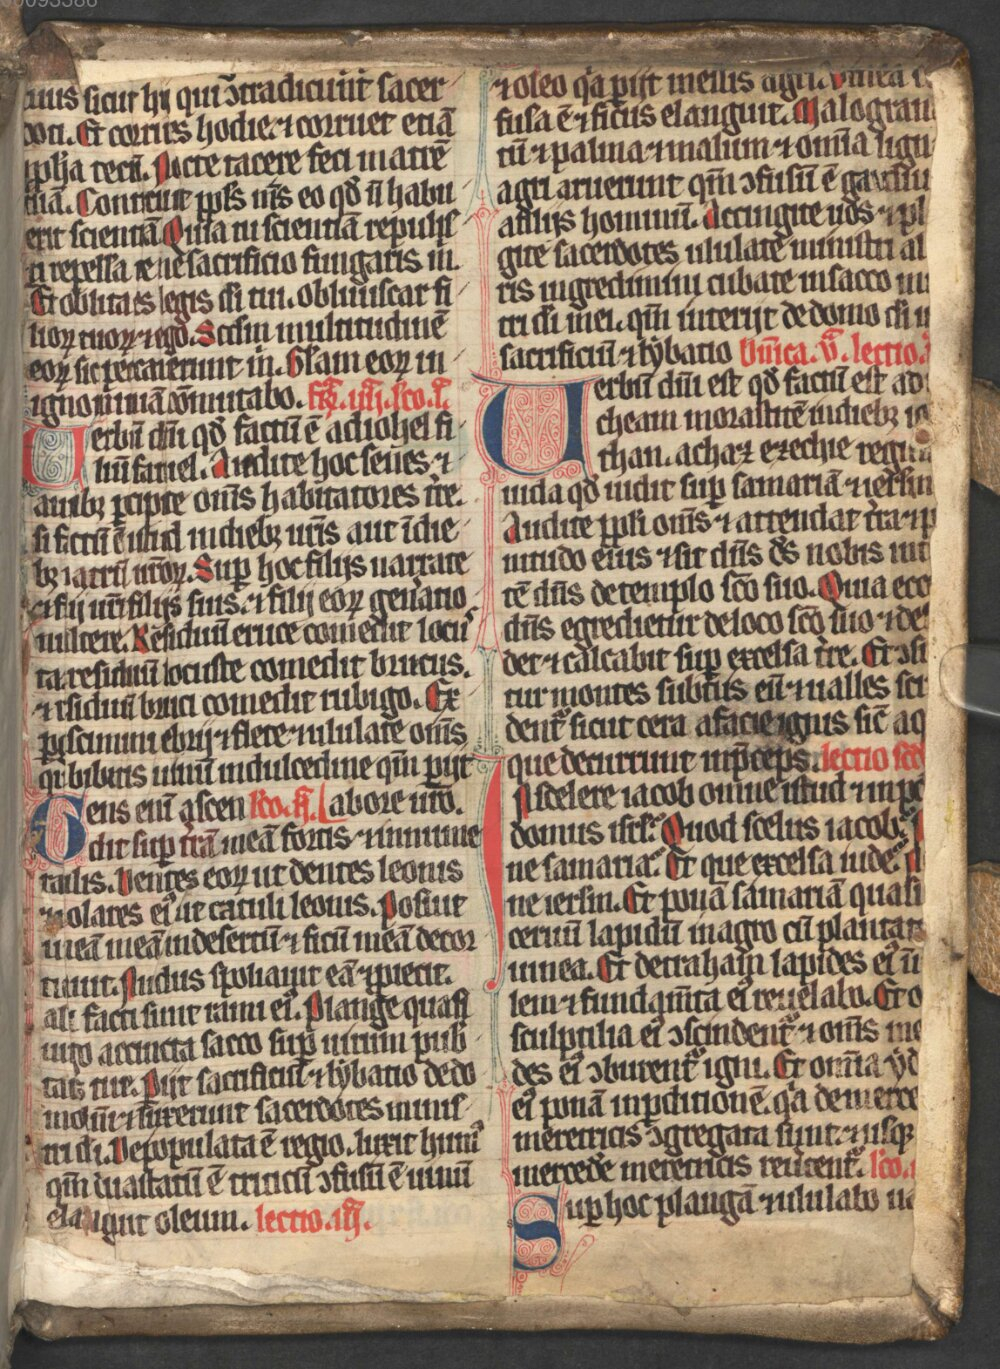 tuus sicut hij qui ɔ̄tradicūt sacer
doti. Et corrues hodie ⁊ corruet etiā
ꝓpha tecū. Nocte tacere feci matrē
tuā. Conticuit ppl̄s m̄s eo qd̄ n̄ habu
erit scientiā Quia tu scientiā repulis
ti repellā te ne sacrificio fungaris m̄.
Et oblita es legis di tui. obliuiscar fi
lioꝝ tuoꝝ ⁊ ego. Scd̄m multitudinē
eoꝝ sic peccauerunt m̄. Gl̄am eoꝝ in
ignominiā cōmutabo.
Uerbū dn̄i qd̄ factū ē ad iohel fi
liū fatuel. Audite hoc senes ⁊
auribꝫ ꝑcipite om̄s habitatores tr̄e.
si factū ē istud in diebꝫ ur̄is aut ī die
bꝫ patrū ur̄oꝝ. Sup hoc filijs uarrate
⁊ fili ur̄i filijs suis ⁊ filij eoꝝ gen̄atio
ni altere. Residuū eruce comedit locus
ta. residuū locuste comedit brucus.
⁊ residuū bruci comedit rubigo. Ex
pgiscimini ebrij ⁊ flete ⁊ ululate om̄s
qi bibitis uinū in dulcedine qm̄ pijt
Gens eni ascen lc̄o. ij. Labore ur̄o.
dit sup trā meā fortis ⁊ innume
rabilis. Dentes eoꝝ ut dentes leonis
⁊ molares eiꝰ ut catuli leonis. Posuit
uineā meā in desertū ⁊ ficū meā decor
ticauit. Nudus spoliauit eā ⁊ proiecit.
albi facti sunt rami eiꝰ. Plange quasi
uirgo accincta sacco sup uirum pub
tatis tue. Pijt sacrificiū ⁊ lybatio de do
mo dn̄i ⁊ luxerunt sacerdotes minis
tri di. Depopulata ē regio. luxit humꝰ
qm̄ duastatū ē triticū ɔfusū ē uinū
elanguit oleum. lectio. iij.
⁊ oleo qa pijt messis agri. Uinea
fusa ē ⁊ ficus elanguit. Malogran
tū ⁊ palma ⁊ malum ⁊ omīa lign
agri aruerunt qm̄ ɔfusū ē gaudiu
a filijs hominū. Accingite uos ⁊ pl
gite sacerdotes ululate ministri al
ris ingredimini cubate in sacco
tri di mei. qm̄ interijt de domo di
sacrificiū ⁊ lybatio Dn̄ica. v. lectio.
Uerbū dn̄i est qd̄ factū est ad
cheam morastitē in diebꝫ io
than. achaz ezechie regū
iuda qd̄ uidit sup samariā ⁊ ierl̄m
Audite ppl̄i om̄s ⁊ attendat tr̄a ⁊ p
nitudo eius ⁊ sit dn̄s ds̄ nobis int
tē dn̄s de templo sc̄o suo. Quia ecc
dn̄s egredietur de loco sc̄o suo ⁊ de
det ⁊ calcabit sup excelsa tr̄e. Et ɔsu
tur montes subtus eū ⁊ ualles sci
dent̄ sicut cera a facie ignis sic̄ aq
que decurrunt in p̄ceps. lectio scd
In scelere iacob omne istud ⁊ in pc
domus isrl̄. Quod scelus iacob.
ne samaria. Et que excelsa iude.
ne ierl̄m. Et ponā samariā quasi
ceruū lapidū in agro cū plantat
uinea. Et detraham lapides eiꝰ ī
lem ⁊ fundam̄ta eiꝰ reuelabo. Et o
sculptilia eiꝰ ɔscindent̄ ⁊ om̄s me
des eiꝰ ɔburent̄ igni. Et omīa yd
eiꝰ ponā in pditionē. qa de merce
meretricis ɔgregata sunt ⁊ usqꝫ
mercede meretricis reūtent̄. lc̄o.
Sup hoc plangā ⁊ ululabo